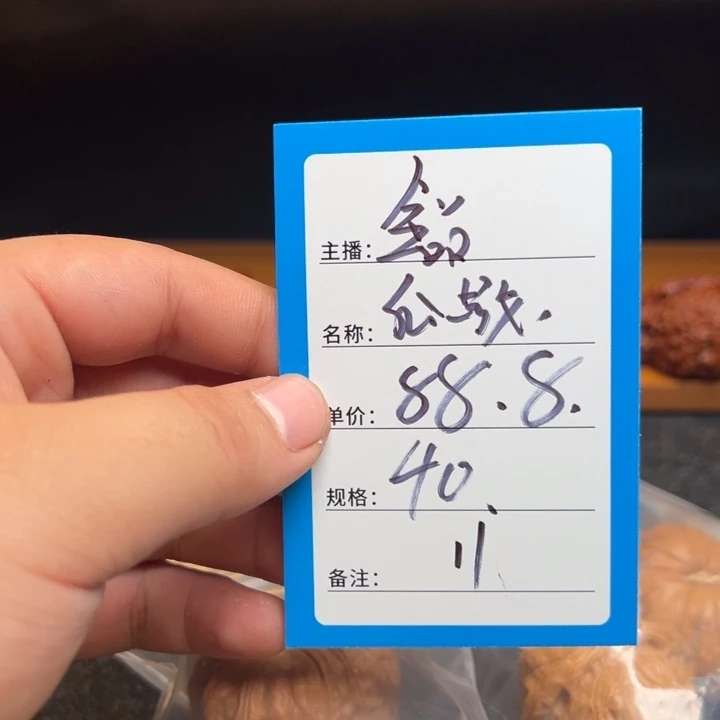 主播：
名称：
单价：88.8.
规格：40.
备注：11